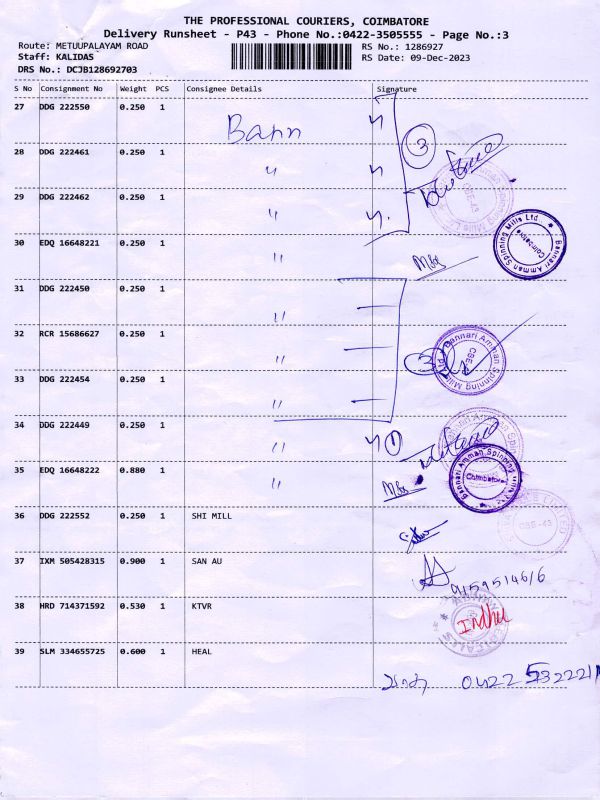 THE PROFESSIONAL COURIERS, COIMBATORE
Delivery Runsheet - P43 - Phone No.:0422-3505555 - Page No.:3
Route: METUUPALAYAM ROAD
RS No.: 1286927
Staff: KALIDAS
RS Date: 09-Dec-2023
DRS No.: DCJB128692703
S No Consignment No Weight PCS Consignee Details Signature
27 DDG 222550 0.250 1 Bann
28 DDG 222461 0.250 1 "
29 DDG 222462 0.250 1 "
30 EDQ 16648221 0.250 1 "
31 DDG 222450 0.250 1 "
32 RCR 15686627 0.250 1 "
33 DDG 222454 0.250 1 "
34 DDG 222449 0.250 1 "
35 EDQ 16648222 0.880 1 "
36 DDG 222552 0.250 1 SHI MILL
37 IXM 505428315 0.900 1 SAN AU
38 HRD 714371592 0.530 1 KTVR Indhu
39 SLM 334655725 0.600 1 HEAL
3
Bannari Amman Spinning Mills Ltd
Coimbatore
3
Bannari Amman Spinning Mills
CBE
1
Bannari Amman Spinning
Coimbatore
CBE-43